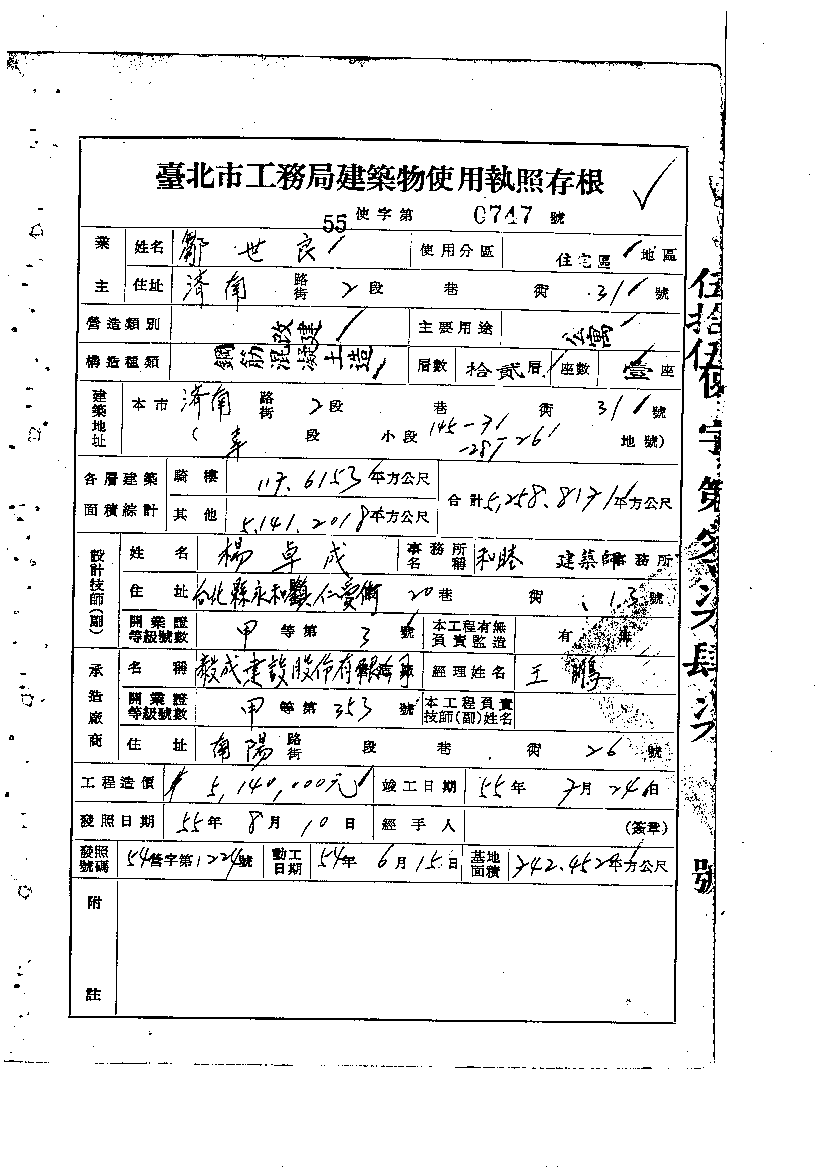 臺北市工務局建築物使用執照存根
55 使字第 0747 號
業主 姓名 鄒世良 使用分區 住宅區 地區
住址 濟南 路街 2 段 巷 街 31 號
營造類別 改建 主要用途 公寓
構造種類 鋼筋混凝土造 層數 拾貳層 座數 壹座
建築地址 本市 濟南 路街 2 段 巷 街 31 號
( 段 小段 145-31 -28 -26 地號)
各層建築面積綜計 騎樓 117.6153 平方公尺 合計 5,258.8171 平方公尺
其他 5,141.2018 平方公尺
設計技師(副) 姓名 楊卓成 事務所名稱 和睦 建築師事務所
住址 台北縣永和鎮仁愛街 20 巷 街 13 號
開業證等級號數 甲 等第 3 號 本工程有無負責監造 有 無
承造廠商 名稱 毅成建設股份有限公司 經理姓名 王鵬
開業證等級號數 甲 等第 353 號 本工程負責技師(副)姓名
住址 南陽 路街 段 巷 街 26 號
工程造價 5,140,000元 竣工日期 55年 7月 24日
發照日期 55年 8月 10日 經手人 (簽章)
發照號碼 54營字第1224號 動工日期 54年 6月 15日 基地面積 742.4524 平方公尺
附註
伍拾伍使字第零柒肆柒號